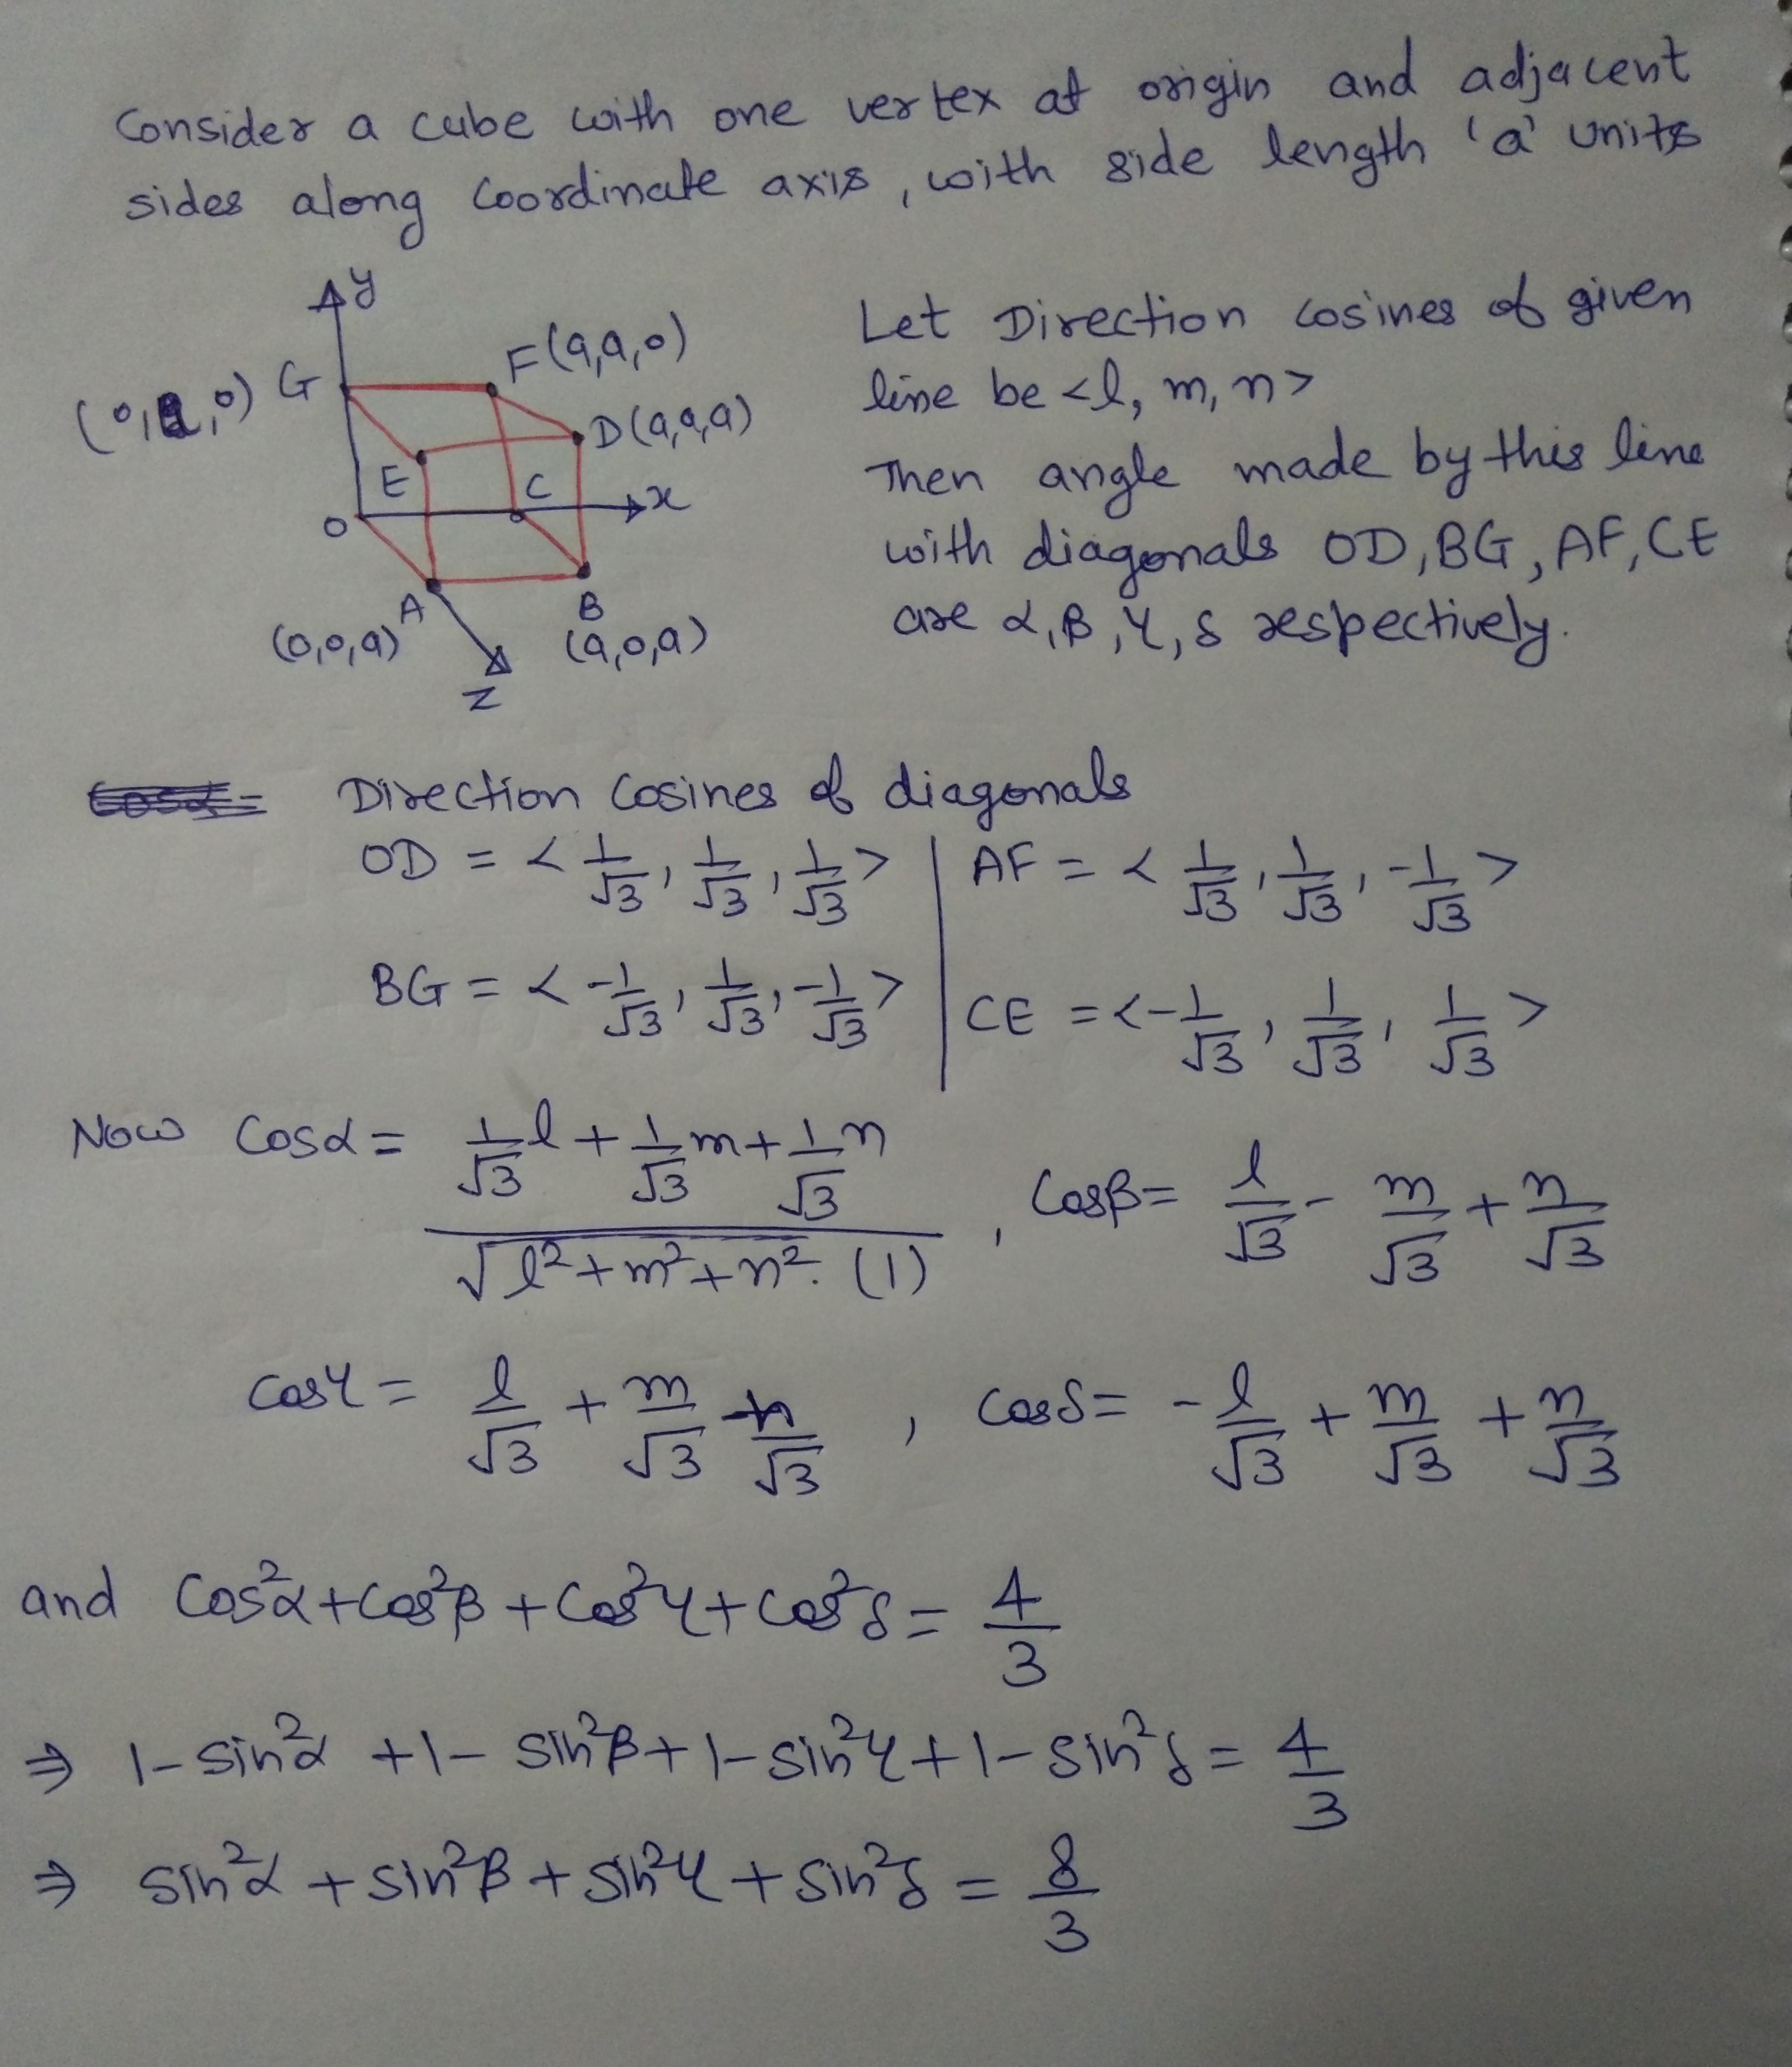 Consider a cube with one vertex at origin and adjacent
sides along coordinate axis, with side length 'a' units
y
F(a,a,0)
(0,a,0) G
D(a,a,a)
E C
O x
A B
(0,0,a) (a,0,a)
z
Let Direction cosines of given
line be <l, m, n>
Then angle made by this line
with diagonals OD, BG, AF, CE
are α, β, γ, δ respectively.
Direction Cosines of diagonals
OD = < 1/√3, 1/√3, 1/√3 > | AF = < 1/√3, 1/√3, -1/√3 >
BG = < -1/√3, 1/√3, -1/√3 > | CE = < -1/√3, 1/√3, 1/√3 >
Now Cosα = (1/√3 l + 1/√3 m + 1/√3 n) / (√l²+m²+n². (1)) , Cosβ = l/√3 - m/√3 + n/√3
Cosγ = l/√3 + m/√3 - n/√3 , Cosδ = -l/√3 + m/√3 + n/√3
and Cos²α + Cos²β + Cos²γ + Cos²δ = 4/3
⇒ 1 - sin²α + 1 - sin²β + 1 - sin²γ + 1 - sin²δ = 4/3
⇒ sin²α + sin²β + sin²γ + sin²δ = 8/3